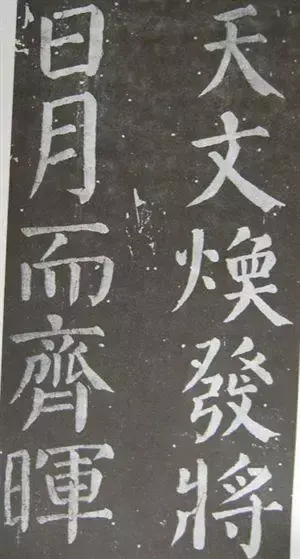 天文煥發將
日月而齊暉